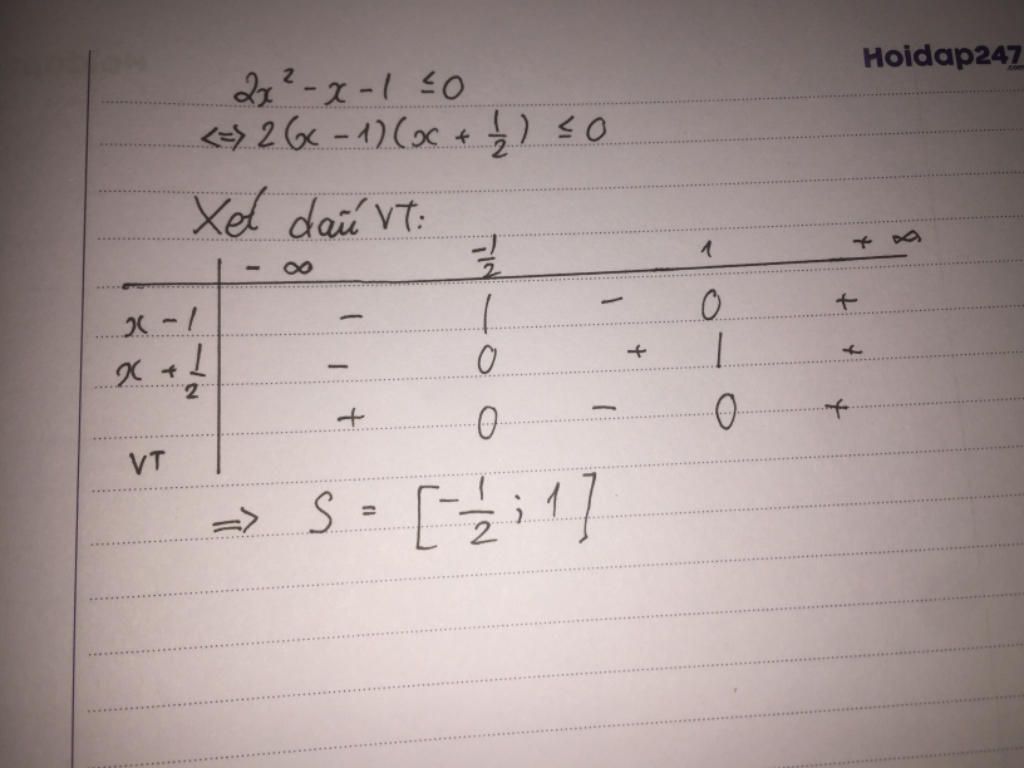 Hoidap247.com
2x² - x - 1 ≤ 0
<=> 2(x - 1)(x + 1/2) ≤ 0
Xét dấu VT:
- ∞ -1/2 1 + ∞
x - 1 - | - 0 +
x + 1/2 - 0 + | +
VT + 0 - 0 +
=> S = [-1/2 ; 1]